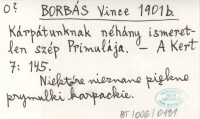 O? BORBÁS Vince 1901b.
Kárpátunknak néhány ismeret-
len szép Primulája. – A Kert
7: 145.
Niektóre nieznane piękne
prymulki karpackie.
BT/006/0191